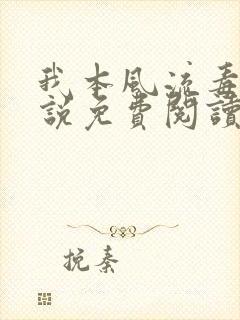 我本风流毒
說免費閱讀
挽秦